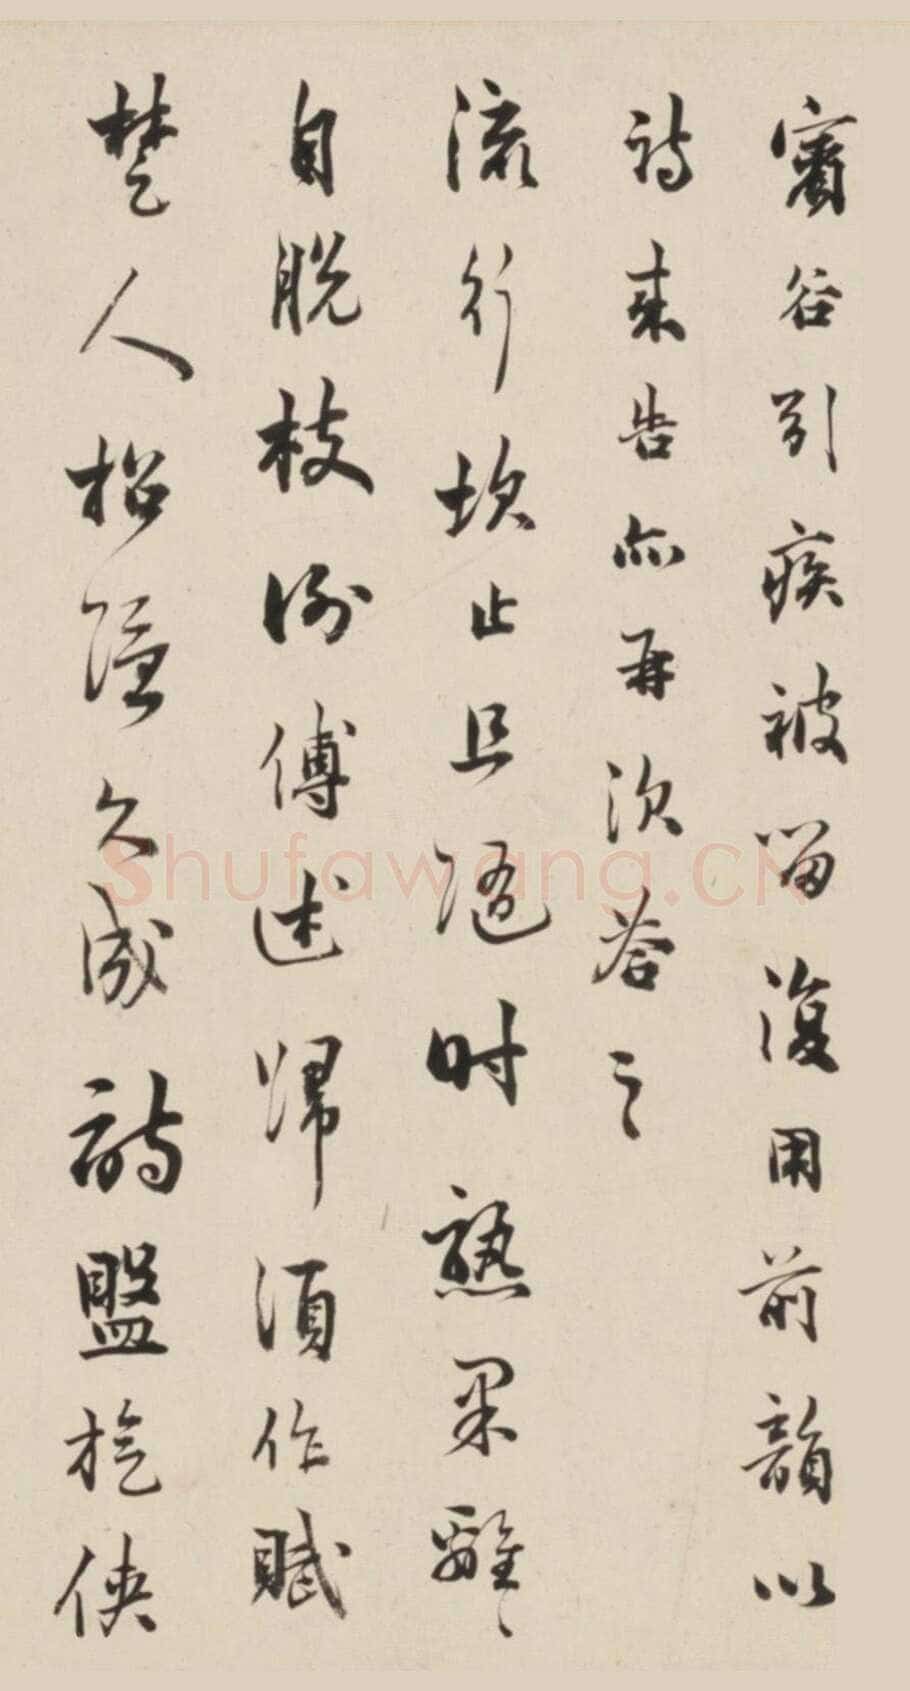 賓谷引疾被留復用前韻以
詩來告亦再次荅之
流行坎止且隨時熟果離〻
自脫枝例傅述歸須作賦
楚人招隱久成詩盤旋俠
Shufawang.CN